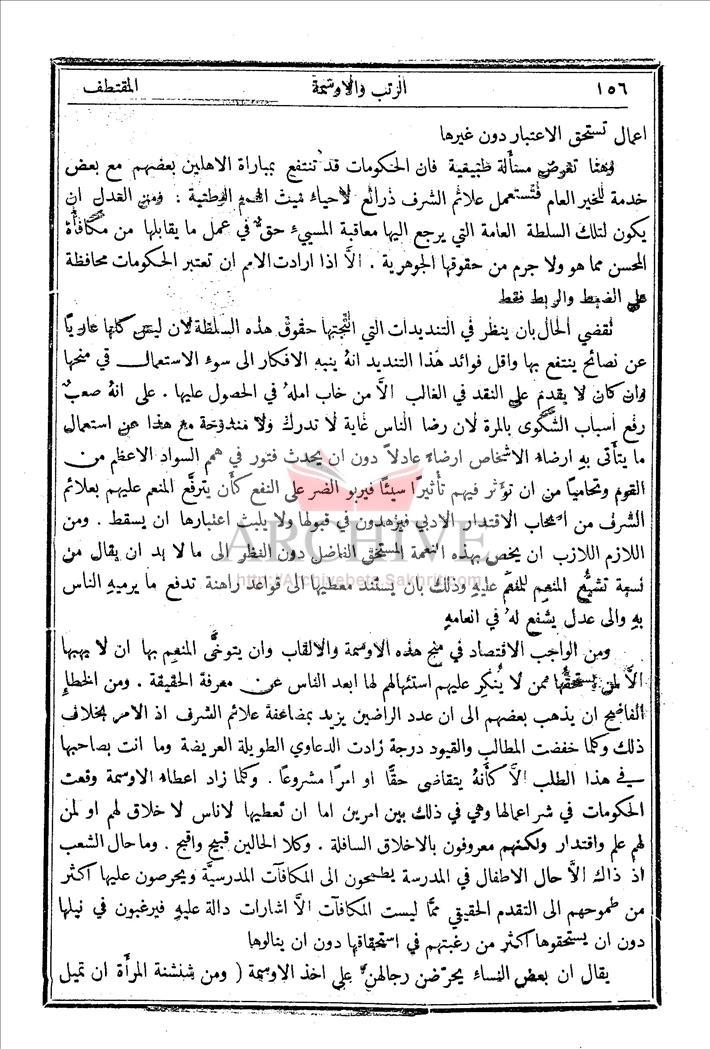 ١٥٦
الرتب والاوسمة
المقتطف
اعمال تستحق الاعتبار دون غيرها
وهنا تعرض مسألة طبيعية فان الحكومات قد تنتفع بمباراة الاهلين بعضهم مع بعض
خدمة للخير العام فتستعمل علائم الشرف ذرائع لاحياء ميت الهمم الوطنية : ومن العدل ان
يكون لتلك السلطة العامة التي يرجع اليها معاقبة المسيء حق في عمل ما يقابلها من مكافأة
المحسن مما هو ولا جرم من حقوقها الجوهرية . الَّا اذا ارادت الامم ان تعتبر الحكومات محافظة
على الضبط والربط فقط
تقضي الحال بان ينظر في التنديدات التي انتجتها حقوق هذه السلطة لان ليس كلها عاريًا
عن نصائح ينتفع بها واقل فوائد هذا التنديد انهُ ينبه الافكار الى سوء الاستعمال في منحها
وان كان لا يقدم على النقد في الغالب الَّا من خاب املهُ في الحصول عليها . على انهُ صعبٌ
رفع اسباب الشكوى بالمرة لان رضا الناس غاية لا تدرك ولا مندوحة مع هذا عن استعمال
ما يتأتى بهِ ارضاء الاشخاص ارضاء عادلاً دون ان يحدث فتور في همم السواد الاعظم من
القوم وتحاميا من ان تؤثر فيهم تأثيرًا سيئًا فيربو الضر على النفع كأن يترفَّع المنعم عليهم بعلائم
الشرف من اصحاب الاقتدار الادبي فيزهدون في قبولها ولا يلبث اعتبارها ان يسقط . ومن
اللازم اللازب ان يخص بهذه النعمة المستحق الفاضل دون النظر الى ما لا بد ان يقال من
نسبة تشيُّع المنعم للمنعم عليهِ وذلك بان يستند معطيها الى قواعد راهنة تدفع ما يرميهِ الناس
بهِ والى عدل يشفع لهُ في انعامهِ
ومن الواجب الاقتصاد في منح هذه الاوسمة والالقاب وان يتوخَّى المنعم بها ان لا يهبها
الَّا لمن يستحقُّها ممن لا يُنكِر عليهم استئهالهم لها ابعد الناس عن معرفة الحقيقة . ومن الخطإِ
الفاضح ان يذهب بعضهم الى ان عدد الراضين يزيد بمضاعفة علائم الشرف اذ الامر بخلاف
ذلك وكلما خفضت المطالب والقيود درجة زادت الدعاوي الطويلة العريضة وما انت بصاحبها
في هذا الطلب الَّا كأَنَّهُ يتقاضى حقًّا او امرًا مشروعًا . وكلما زاد اعطاء الاوسمة وقعت
الحكومات في شر اعمالها وهي في ذلك بين امرين اما ان تعطيها لاناس لا خلاق لهم او لمن
لهم علم واقتدار ولكنهم معروفون بالاخلاق السافلة . وكلا الحالين قبيح واقبح . وما حال الشعب
اذ ذاك الَّا حال الاطفال في المدرسة يطمحون الى المكافآت المدرسيَّة ويحرصون عليها اكثر
من طموحهم الى التقدم الحقيقي ممَّا ليست المكافآت الَّا اشارات دالة عليهِ فيرغبون في نيلها
دون ان يستحقوها اكثر من رغبتهم في استحقاقها دون ان ينالوها
يقال ان بعض النساء يحرّضن رجالهن على اخذ الاوسمة ( ومن شنشنة المرأة ان تميل
ARCHIVE
http://Archivebeta.Sakhrit.com